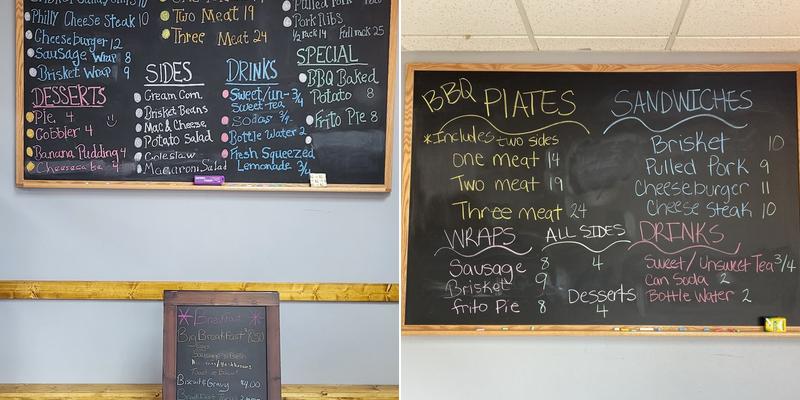 Philly Cheese Steak 10
Cheeseburger 12
Sausage Wrap 8
Brisket Wrap 9
DESSERTS
Pie 4
Cobbler 4
Banana Pudding 4
Cheesecake 4
Two Meat 19
Three Meat 24
SIDES
Cream Corn
Brisket Beans
Mac & Cheese
Potato Salad
Coleslaw
Macaroni Salad
DRINKS
Sweet/un- 3/4
Sweet-tea
Sodas
Bottle Water 2
Fresh Squeezed
Lemonade 3/4
Pulled Pork
Pork Ribs
1/2 rack 14 Full rack 25
SPECIAL
BBQ Baked
Potato 8
Frito Pie 8
Breakfast
Big Breakfast
Biscuit & Gravy $4.00
BBQ PLATES
*Includes two sides
one meat 14
Two meat 19
Three meat 24
SANDWICHES
Brisket 10
Pulled Pork 9
Cheeseburger 11
Cheese Steak 10
WRAPS
Sausage 8
Brisket 9
frito Pie 8
ALL SIDES
4
Desserts
4
DRINKS
Sweet/Unsweet Tea 3/4
Can Soda 2
Bottle Water 2